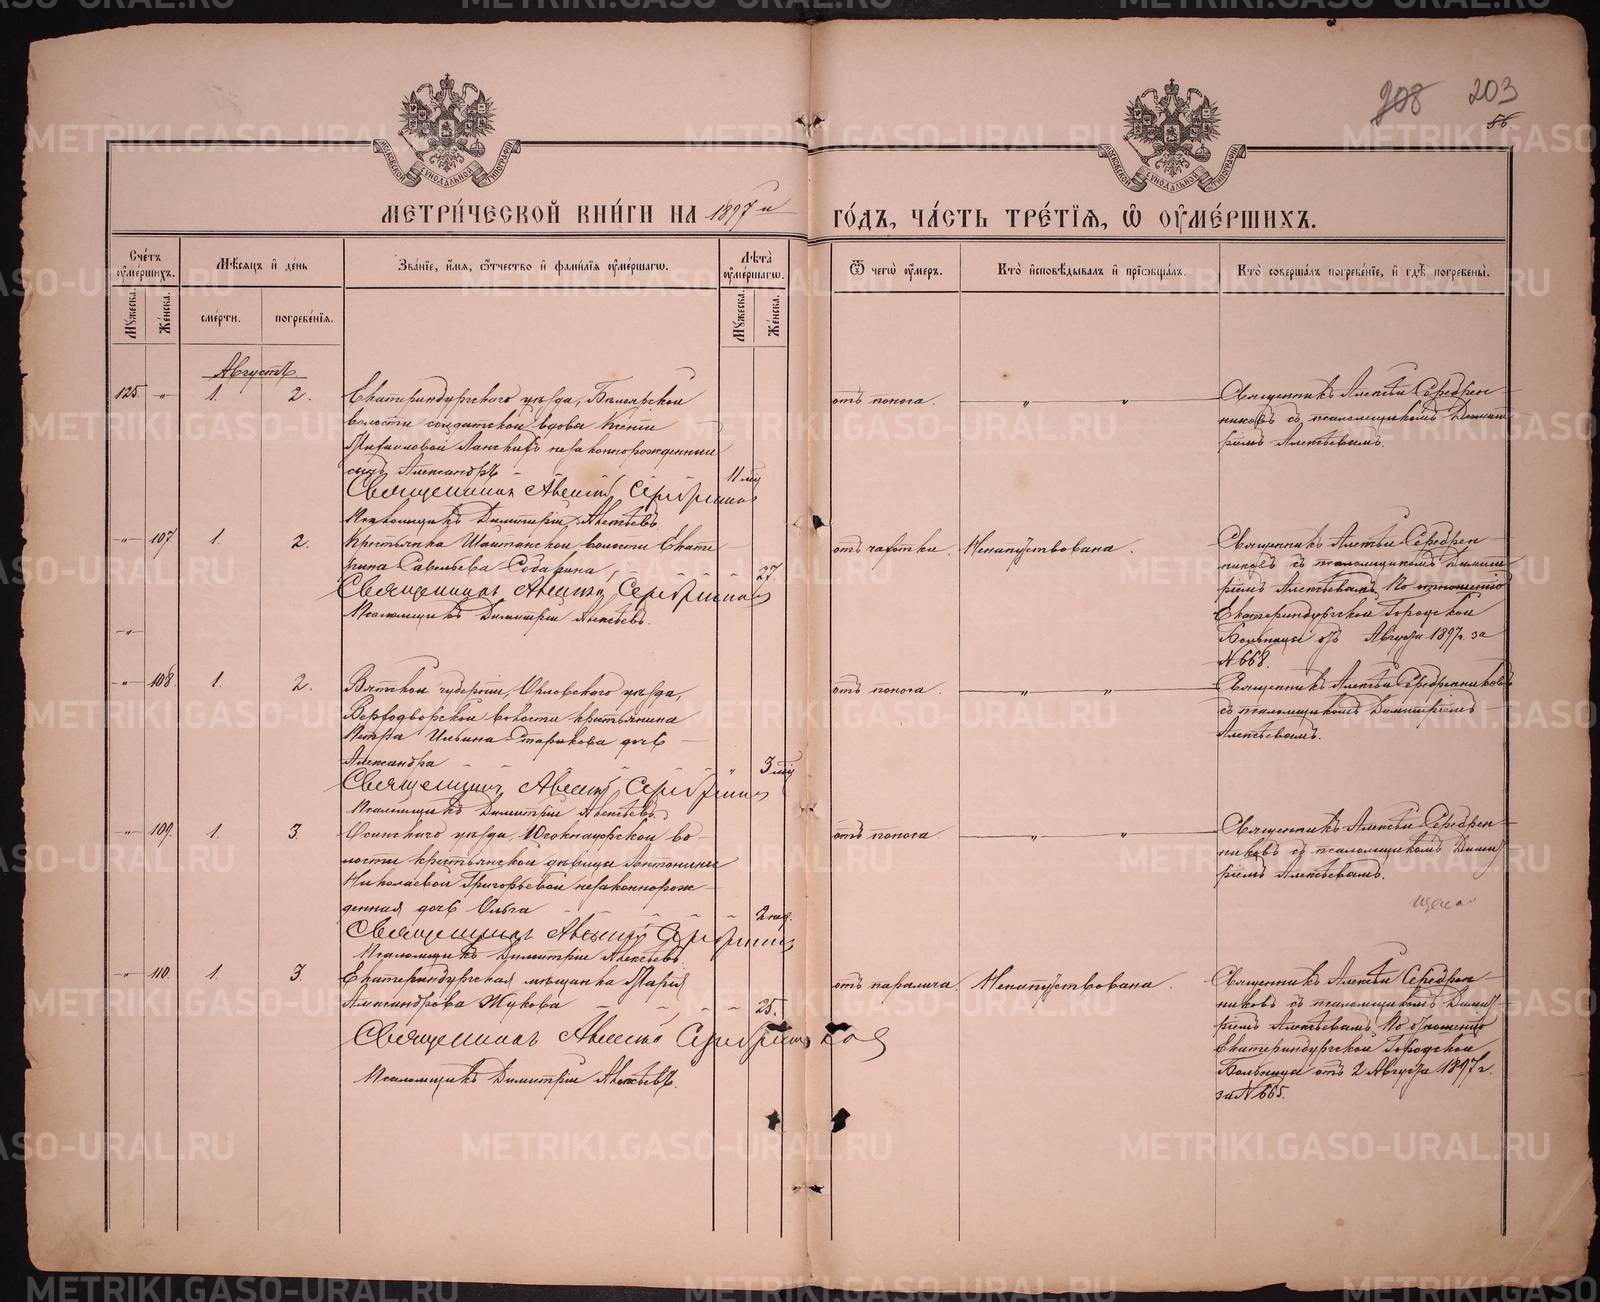 208 203
56
МЕТРИ́ЧЕСКОЙ КНИ́ГИ НА 1897 й ГО́ДЪ, ЧА́СТЬ ТРЕ́ТІѦ, Ѿ ОУ҆МЕ́РШИХЪ.
Сче́тъ оу҆ме́ршихъ.
Мꙋжеска.
Же́нска.
Мѣ́сѧцъ и҆ де́нь
сме́рти.
погребе́нїѧ.
Зва́нїе, и҆́мѧ, ѻ҆́тчество и҆ фами́лїѧ оу҆ме́ршагѡ.
Лѣ́та оу҆ме́ршагѡ.
Мꙋжеска.
Же́нска.
Ѿ чегѡ̀ оу҆́меръ.
Кто̀ и҆сповѣ́дывалъ и҆ прїѡбща́лъ.
Кто̀ соверша́лъ погребе́нїе, и҆ гдѣ̀ погребены̀.
Августъ.
125 " 1. 2.
Екатеринбургскаго уѣзда,
волости солдатской вдовы Ксеніи
незаконнорожденный
сынъ Александръ 11 мц
Священникъ Алексій Серебренников
Псаломщикъ Димитрій Алексѣевъ.
отъ поноса. " "
Священникъ Алексѣй Серебрен-
никовъ съ псаломщикомъ Димит-
ріемъ Алексѣевымъ.
" 107 1. 2.
Крестьянка Шайтанской волости Екате-
рина Савельева 27.
Священникъ Алексій Серебренников
Псаломщикъ Димитрій Алексѣевъ.
отъ чахотки. Ненапутствована.
Священникъ Алексѣй Серебрен-
никовъ съ псаломщикомъ Димит-
ріемъ Алексѣевымъ. По отношенію
Екатеринбургской Городской
Больницы отъ Августа 1897 г. за
№ 668.
" 108 1. 2.
Вятской губерніи, Орловскаго уѣзда,
волости крестьянина
Петра Ильина Старикова дочь
Александра " 3 мц
Священникъ Алексій Серебренников
Псаломщикъ Димитрій Алексѣевъ.
отъ поноса. " "
Священникъ Алексѣй Серебренниковъ
съ псаломщикомъ Димитріемъ
Алексѣевымъ.
" 109. 1. 3.
Осинскаго уѣзда, во-
лости крестьянской дѣвицы Антонины
Николаевой Григорьевой незаконнорож-
денная дочь Ольга 2 нед.
Священникъ Алексій Серебренников
Псаломщикъ Димитрій Алексѣевъ.
отъ поноса. " "
Священникъ Алексѣй Серебрен-
никовъ съ псаломщикомъ Димит-
ріемъ Алексѣевымъ.
" 110. 1. 3.
Екатеринбургская мѣщанка Марія
Александрова Жукова 25.
Священникъ Алексій Серебренников
Псаломщикъ Димитрій Алексѣевъ.
отъ паралича. Ненапутствована.
Священникъ Алексѣй Серебрен-
никовъ съ псаломщикомъ Димит-
ріемъ Алексѣевымъ. По отношенію
Екатеринбургской Городской
Больницы отъ 2 Августа 1897 г.
за № 665.
METRIKI.GASO-URAL.RU